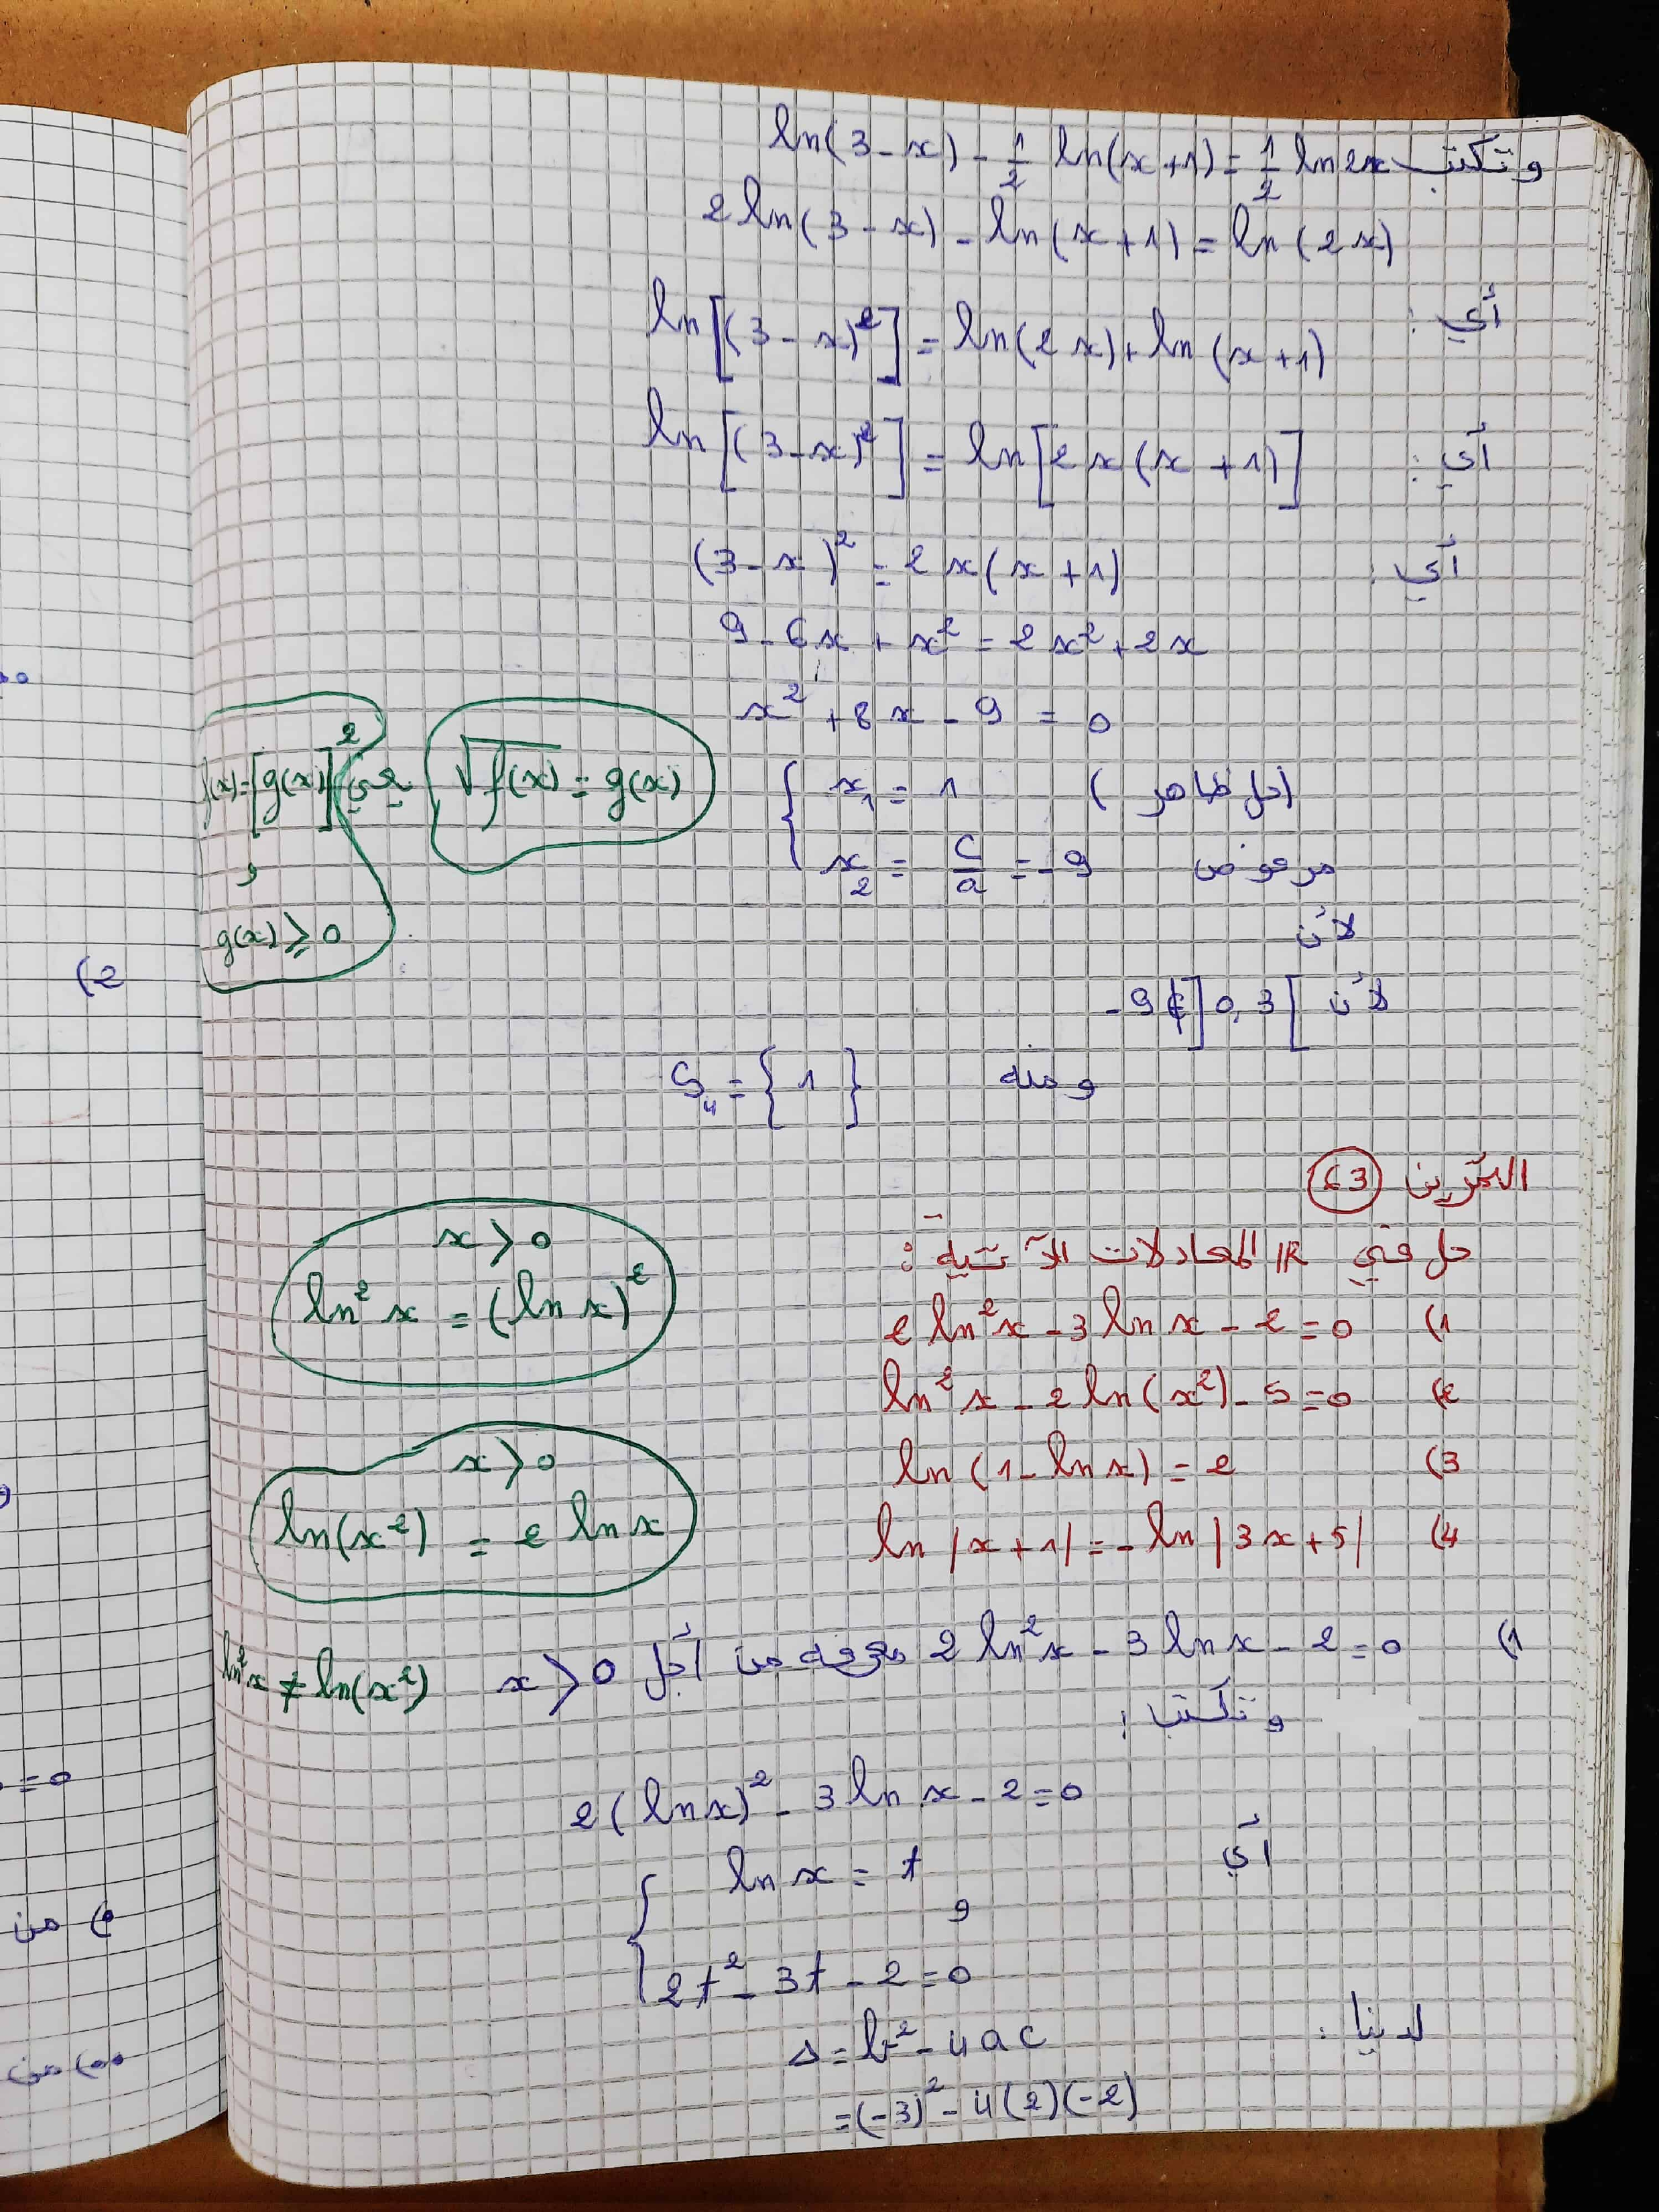 وتكتب ln(3-x) - 1/2 ln(x+1) = 1/2 ln 2x
2 ln(3-x) - ln(x+1) = ln(2x)
أي : ln[(3-x)²] = ln(2x) + ln(x+1)
أي : ln[(3-x)²] = ln[2x(x+1)]
أي : (3-x)² = 2x(x+1)
9 - 6x + x² = 2x² + 2x
x² + 8x - 9 = 0
x₁ = 1 (حل ظاهر)
x₂ = c/a = -9 مرفوض
لأن
لأن -9 ∉ ]0,3[
ومنه S₄ = {1}
√f(x) = g(x) يعني f(x) = [g(x)]²
و
g(x) ≥ 0
التمرين 63
حل في IR المعادلات الآتية :
1) 2 ln²x - 3 ln x - 2 = 0
2) ln²x - 2 ln(x²) - 5 = 0
3) ln(1 - ln x) = 2
4) ln|x+1| = -ln|3x+5|
x > 0
ln²x = (ln x)²
x > 0
ln(x²) = 2 ln x
1) 2 ln²x - 3 ln x - 2 = 0 معرفة من أجل x > 0
ln²x ≠ ln(x²)
وتكتب :
2(ln x)² - 3 ln x - 2 = 0
أي
ln x = t
و
2t² - 3t - 2 = 0
لدينا : Δ = b² - 4ac
= (-3)² - 4(2)(-2)
2)
= 0
من
من